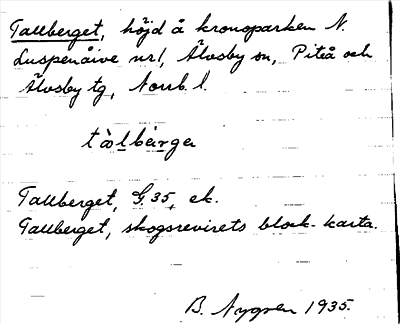 Tallberget, höjd å kronoparken N.
Luspenåive nr 1, Älvsby sn, Piteå och
Älvsby tg, Norrb. l.
tàlbèrga
Tallberget, G. 35, ek.
Tallberget, skogsrevirets block-karta.
B. Nygren 1935.